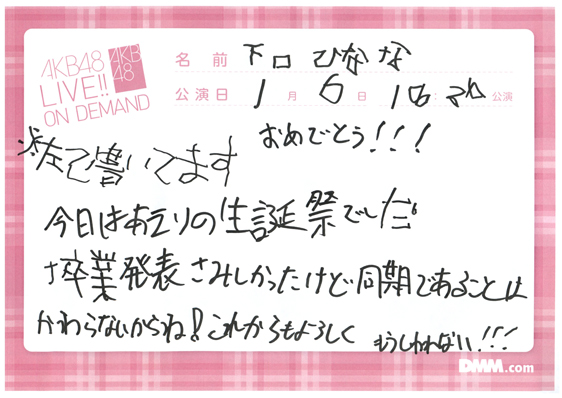 AKB48
LIVE!!
ON DEMAND
AKB
48
名前 下口ひなな
公演日 1月6日 18:30公演
おめでとう!!!
※左で書いてます
今日はあえりの生誕祭でした。
卒業発表さみしかったけど同期であることは
かわらないからね!これからもよろしく
もうしわけない!!!
DMM.com